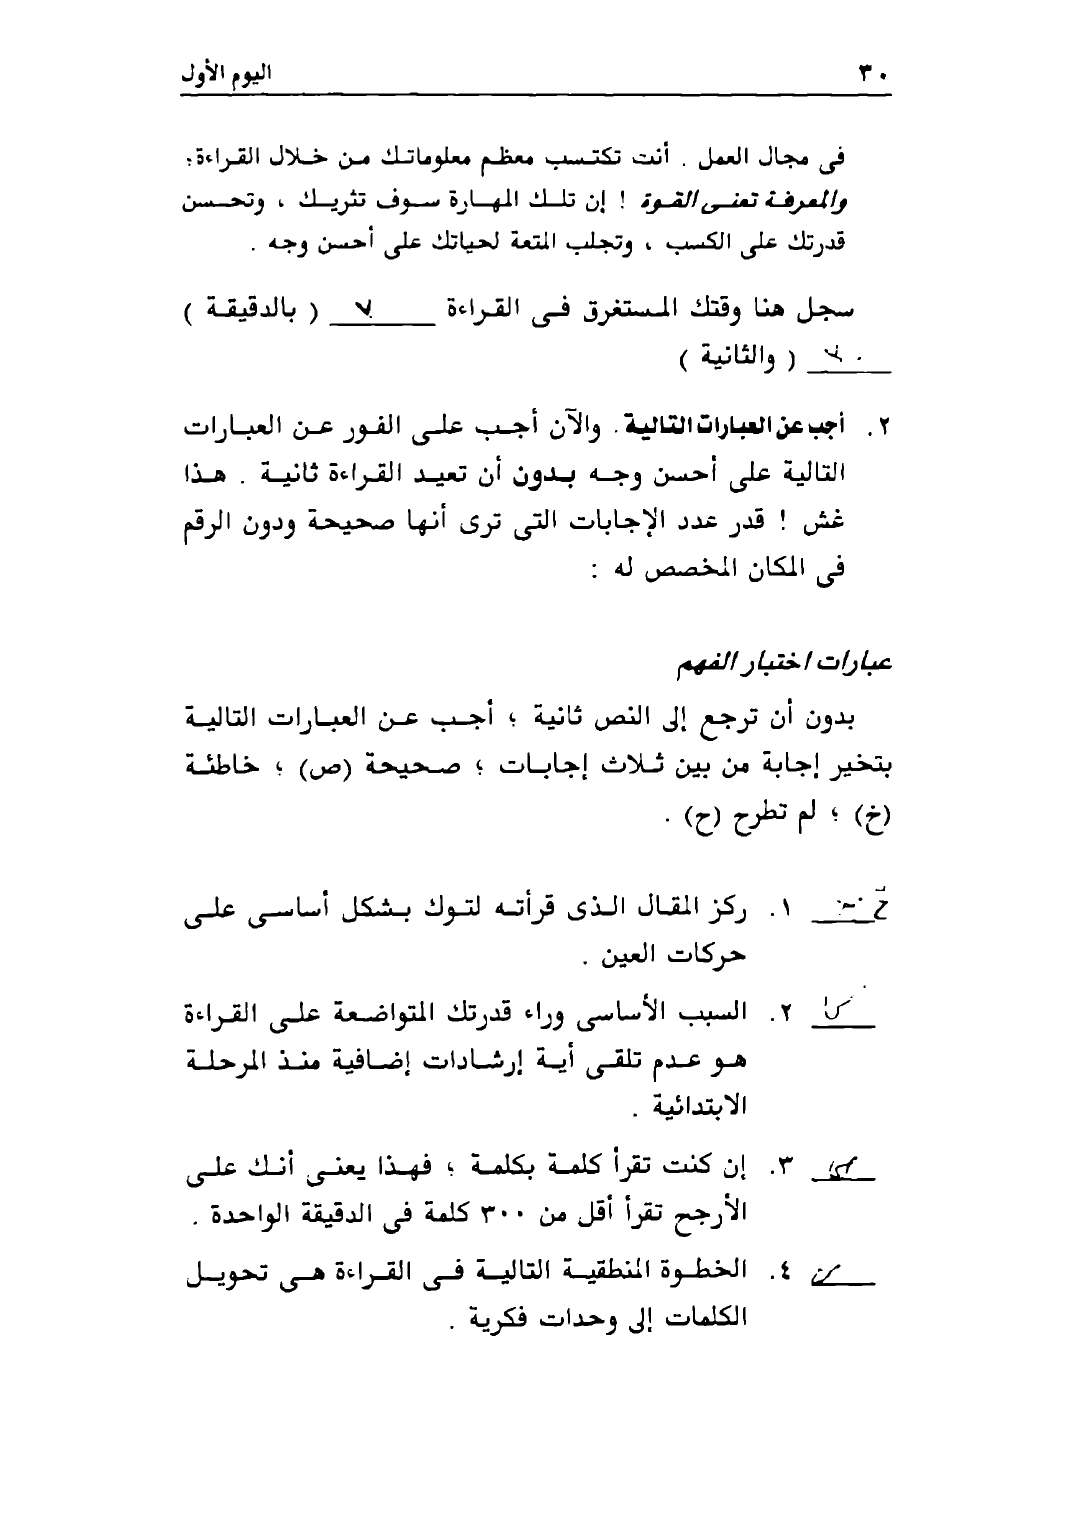 ٣٠ اليوم الأول
فى مجال العمل . أنت تكتسب معظم معلوماتك من خلال القراءة ؛
والمعرفة تعنى القوة ! إن تلك المهارة سوف تثريك ، وتحسن
قدرتك على الكسب ، وتجلب المتعة لحياتك على أحسن وجه .
سجل هنا وقتك المستغرق فى القراءة ٧ ( بالدقيقة )
( والثانية )
٢. أجب عن العبارات التالية . والآن أجب على الفور عن العبارات
التالية على أحسن وجه بدون أن تعيد القراءة ثانية . هذا
غش ! قدر عدد الإجابات التى ترى أنها صحيحة ودون الرقم
فى المكان المخصص له :
عبارات اختبار الفهم
بدون أن ترجع إلى النص ثانية ؛ أجب عن العبارات التالية
بتخير إجابة من بين ثلاث إجابات ؛ صحيحة (ص) ؛ خاطئة
(خ) ؛ لم تطرح (ح) .
١. ركز المقال الذى قرأته لتوك بشكل أساسى على
حركات العين .
٢. السبب الأساسى وراء قدرتك المتواضعة على القراءة
هو عدم تلقى أية إرشادات إضافية منذ المرحلة
الابتدائية .
٣. إن كنت تقرأ كلمة بكلمة ؛ فهذا يعنى أنك على
الأرجح تقرأ أقل من ٣٠٠ كلمة فى الدقيقة الواحدة .
٤. الخطوة المنطقية التالية فى القراءة هى تحويل
الكلمات إلى وحدات فكرية .